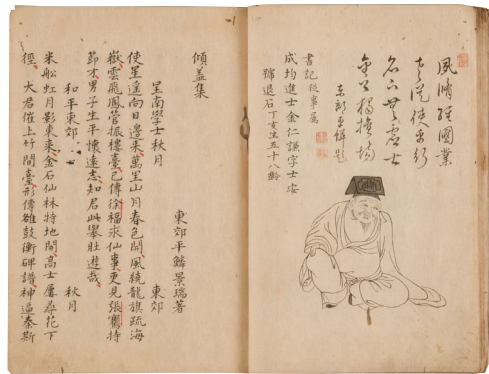 經國業
名下無虛士
獨擅場
東郊平鱗題
書記從事属
成均進士金仁謙字士安
號退石丁亥生五十八齡
傾盖集
東郊平鱗景瑞著
呈南學士秋月 東郊
使星遥向日邊来萬里山月春色開風繞龍旗疏海
嶽雲飛鳳管振樓臺已傳徐福求仙事更見張騫持
節才男子生平懷遠志知君此擧壯遊哉
和平東郊 秋月
米船虹月影東来金石仙林特地開高士屢尋花下
徑大君催上竹間臺形傳鼓衡碑譜神逼秦斯